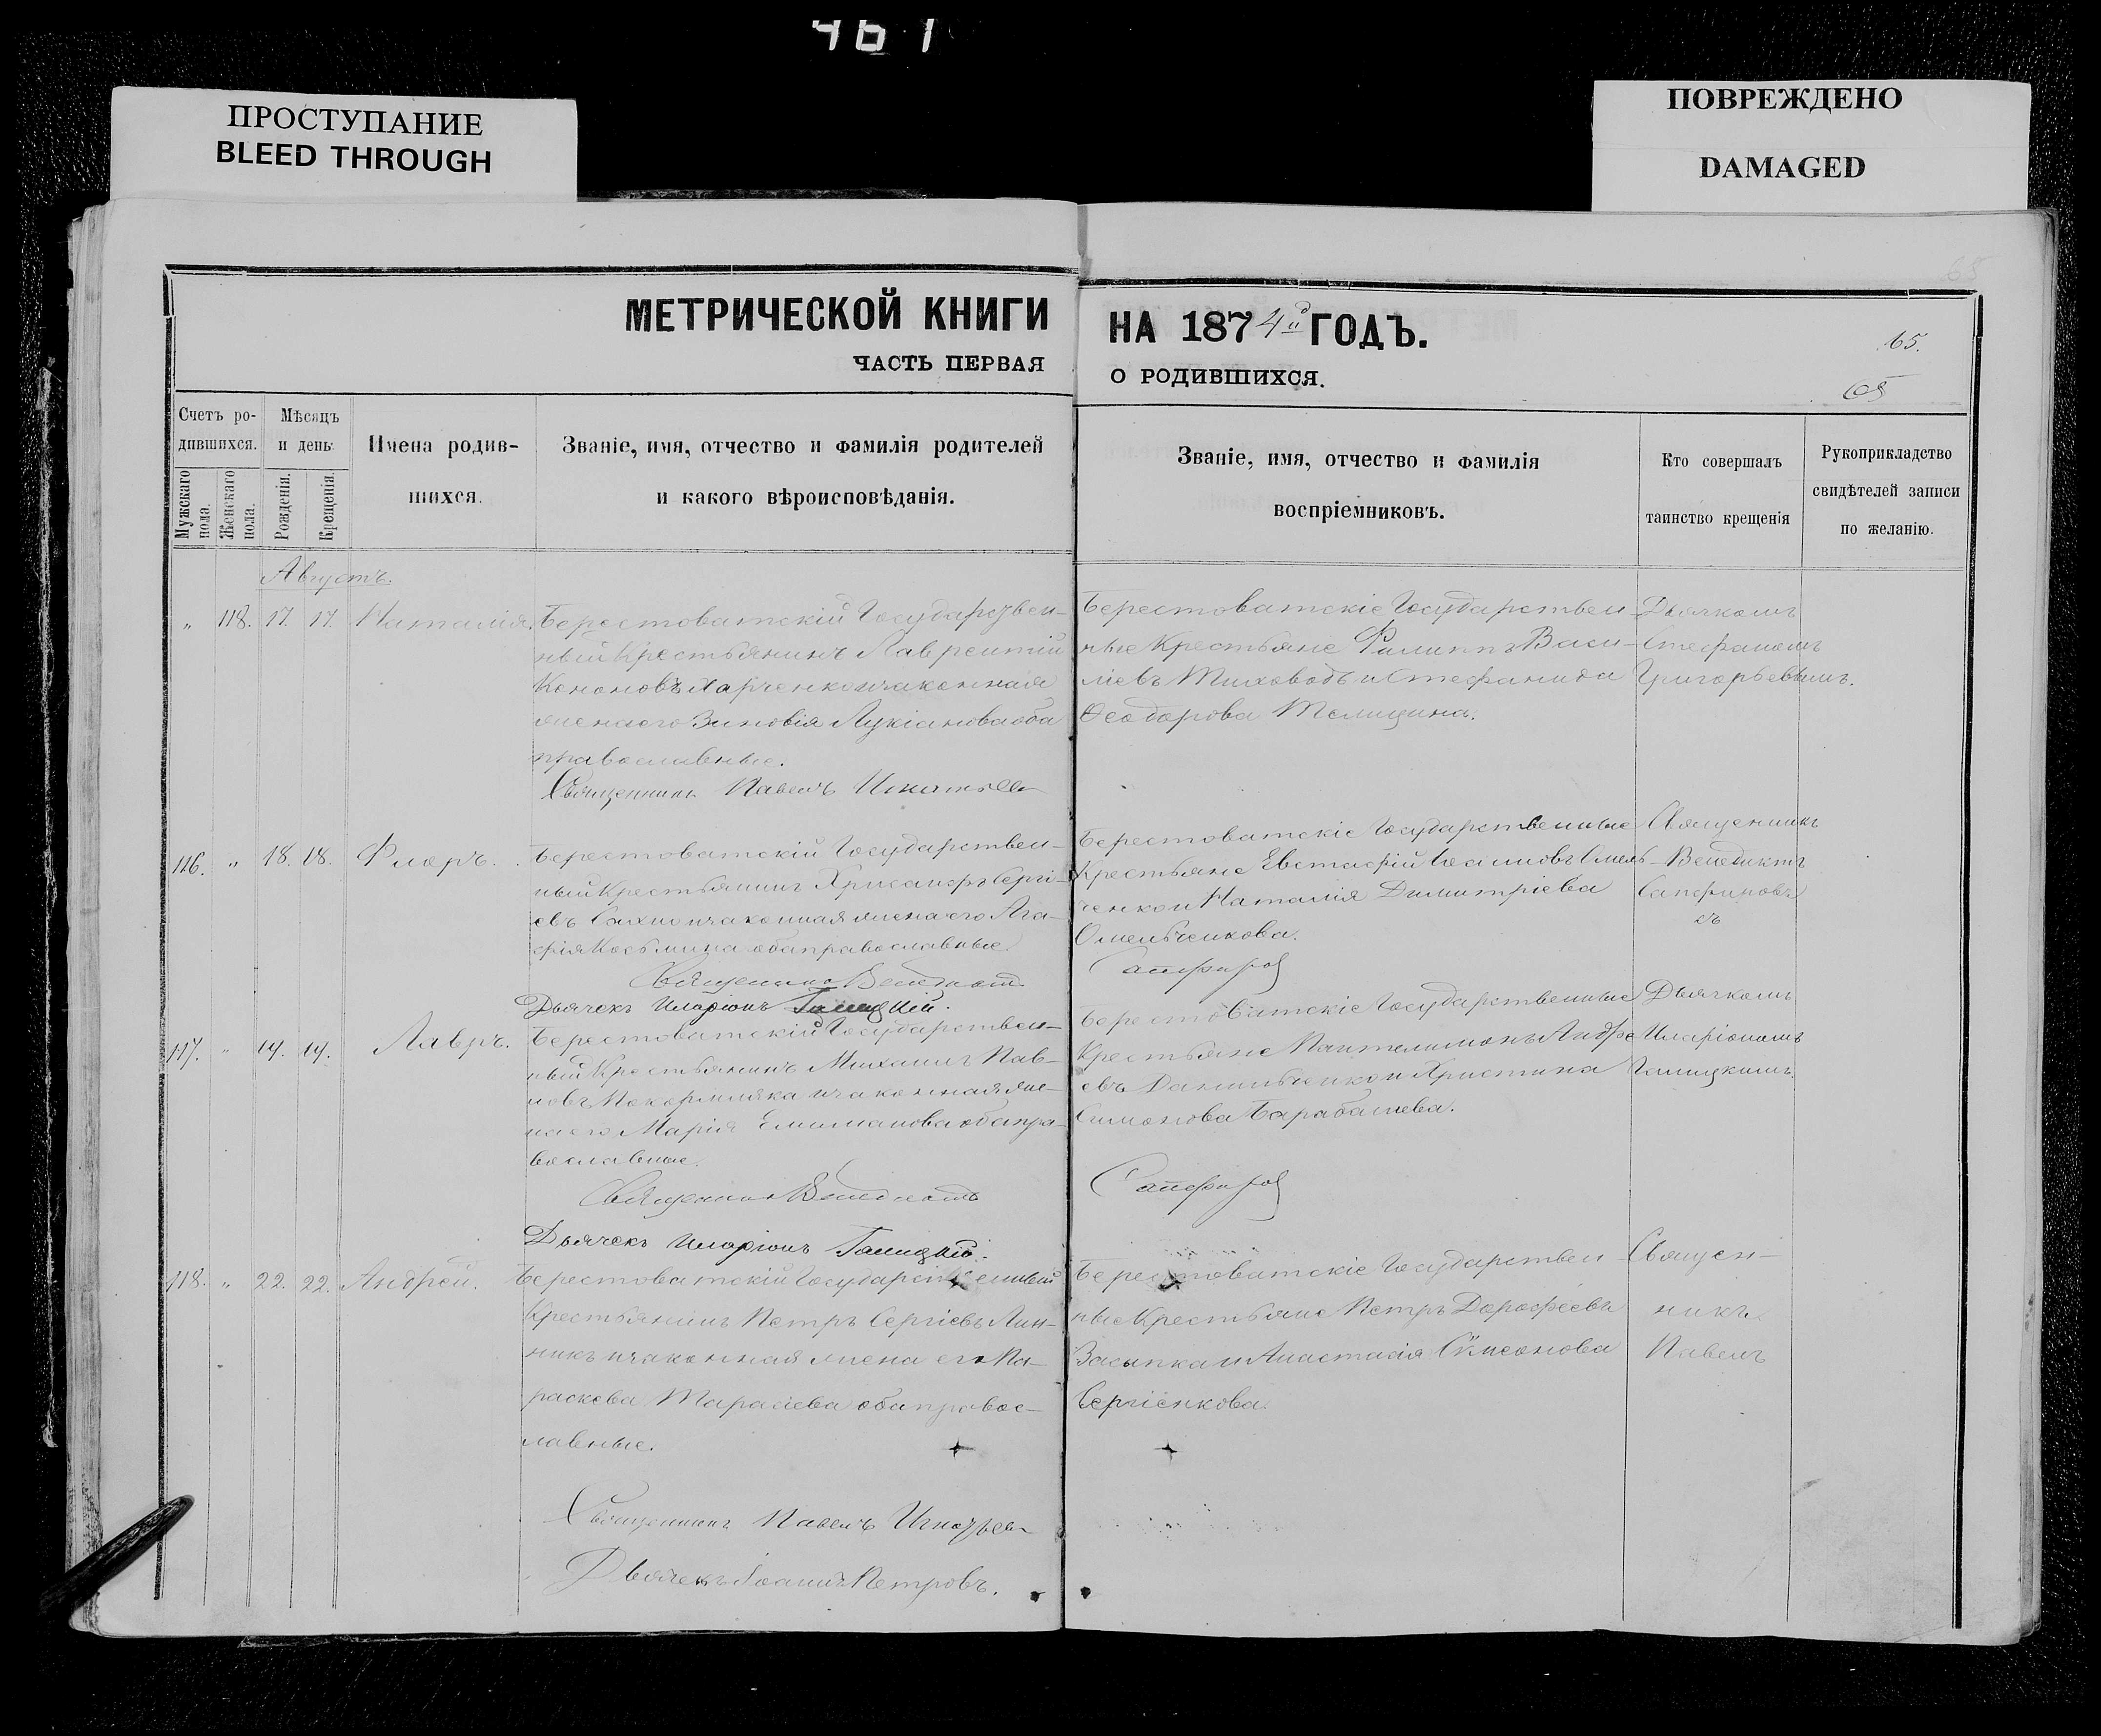 461
ПРОСТУПАНИЕ
BLEED THROUGH
ПОВРЕЖДЕНО
DAMAGED
МЕТРИЧЕСКОЙ КНИГИ
ЧАСТЬ ПЕРВАЯ
НА 1874й ГОДЪ.
О РОДИВШИХСЯ.
65.
65
Счетъ ро-
дившихся.
Мужскаго
пола.
Женскаго
пола.
Мѣсяцъ
и день
Рожденія.
Крещенія.
Имена родив-
шихся.
Званіе, имя, отчество и фамилія родителей
и какого вѣроисповѣданія.
Званіе, имя, отчество и фамилія
воспріемниковъ.
Кто совершалъ
таинство крещенія
Рукоприкладство
свидѣтелей записи
по желанію.
Августъ.
„ 118. 17. 17. Наталія.
Берестоватскій Государствен-
ный Крестьянинъ Лаврентій
Кононовъ Харченко и законная
жена его Зиновія Лукіанова оба
православные.
Священникъ Павелъ Игнатьев
Берестоватскіе Государствен-
ные Крестьяне Филиппъ Васи-
ліевъ и Стефанида
Ѳеодорова
Дьячкомъ
Стефаномъ
Григорьевымъ.
116. „ 18. 18. Флоръ.
Берестоватскій Государствен-
ный Крестьянинъ Хрисанфъ Сергі-
евъ и законная жена его Ага-
фія Косьмина оба православные.
Священникъ Венедиктъ
Дьячекъ Иларіонъ Галицкій.
Берестоватскіе Государственные
Крестьяне Евстафій Іоанновъ Омель-
ченко и Наталія Димитріева
Омельченкова.
Сапфировъ
Священникъ
Венедиктъ
Сапфировъ
117. „ 19. 19. Лавръ.
Берестоватскій Государствен-
ный Крестьянинъ Михаилъ Пав-
ловъ и законная же-
на его Марія оба пра-
вославные.
Священникъ Венедиктъ
Дьячекъ Иларіонъ Галицкій.
Берестоватскіе Государственные
Крестьяне Пантелимонъ Андре-
евъ Данильченко и Христина
Симонова Барабашева.
Сапфировъ
Дьячкомъ
Иларіономъ
Галицкимъ.
118. „ 22. 22. Андрей.
Берестоватскій Государственный
Крестьянинъ Петръ Сергіевъ Лин-
никъ и законная жена его Па-
раскева Тарасіева оба правос-
лавные.
Священникъ Павелъ Игнатьев
Дьячекъ Іоаннъ Петровъ.
Берестоватскіе Государствен-
ные Крестьяне Петръ Дорофеевъ
Засыпка и Анастасія Сѵмеонова
Сергіенкова.
Священ-
никъ
Павелъ